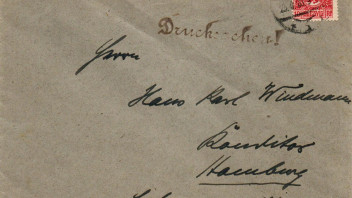 Drucksachen!
Herrn
Hans Karl Windmann
Konditor
Hamburg